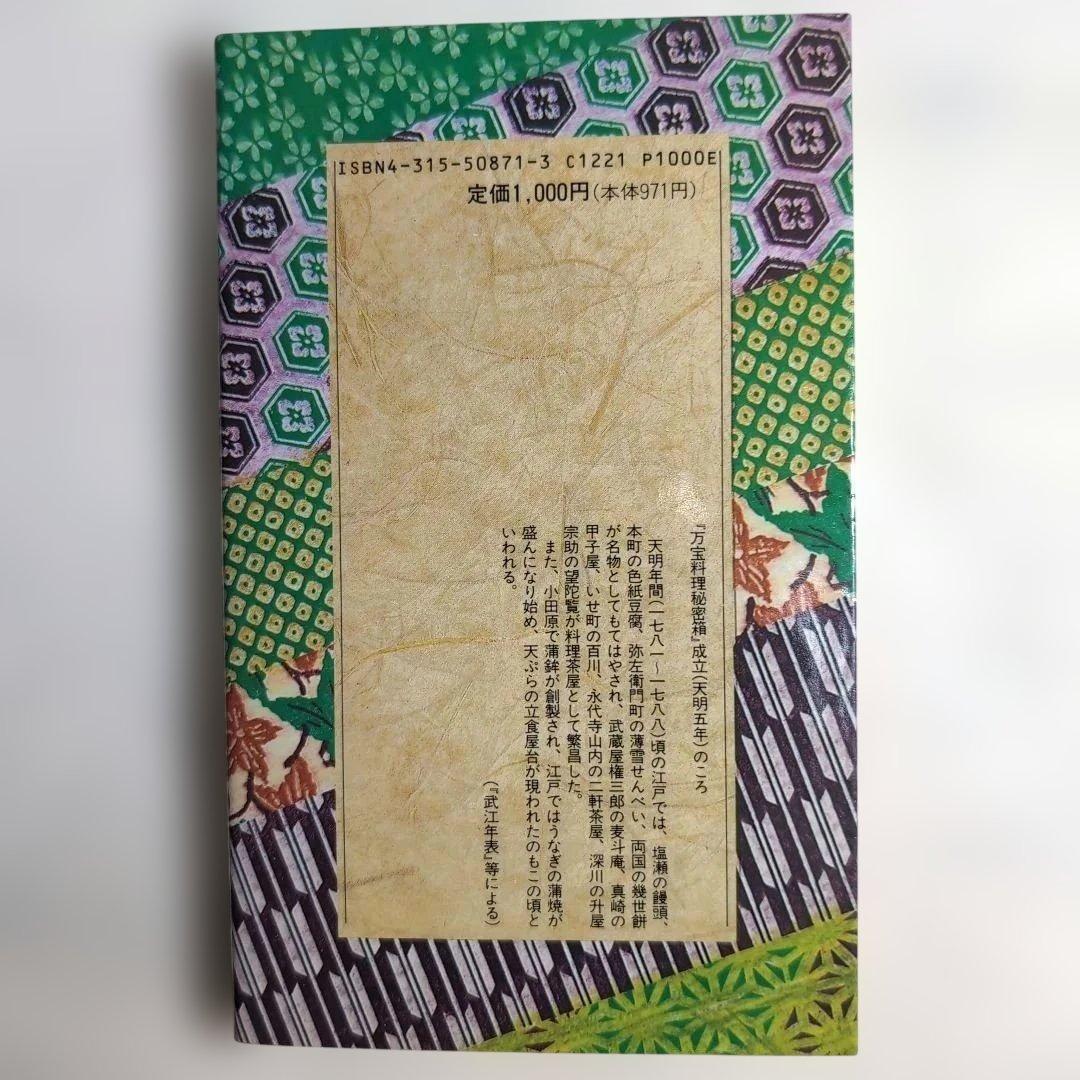 ISBN4-315-50871-3 C1221 P1000E
定価1,000円(本体971円)
『万宝料理秘密箱』成立(天明五年)のころ
天明年間(一七八一〜一七八八)頃の江戸では、塩瀬の饅頭、
本町の色紙豆腐、弥左衛門町の薄雪せんべい、両国の幾世餅
が名物としてもてはやされ、武蔵屋権三郎の麦斗庵、真崎の
甲子屋、いせ町の百川、永代寺山内の二軒茶屋、深川の升屋
宗助の望陀覧が料理茶屋として繁昌した。
また、小田原で蒲鉾が創製され、江戸ではうなぎの蒲焼が
盛んになり始め、天ぷらの立食屋台が現われたのもこの頃と
いわれる。
(『武江年表』等による)